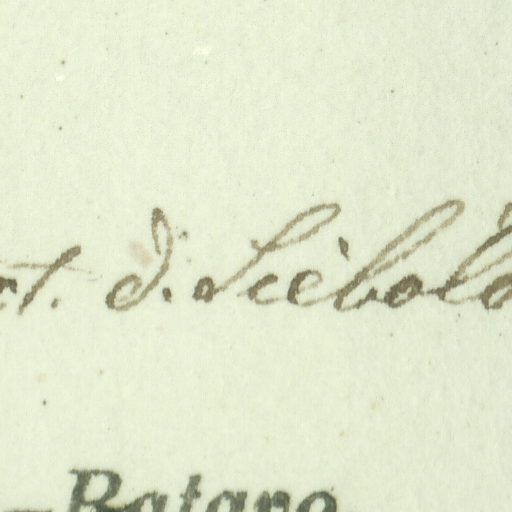 ct. d. Siebold
-Batavo